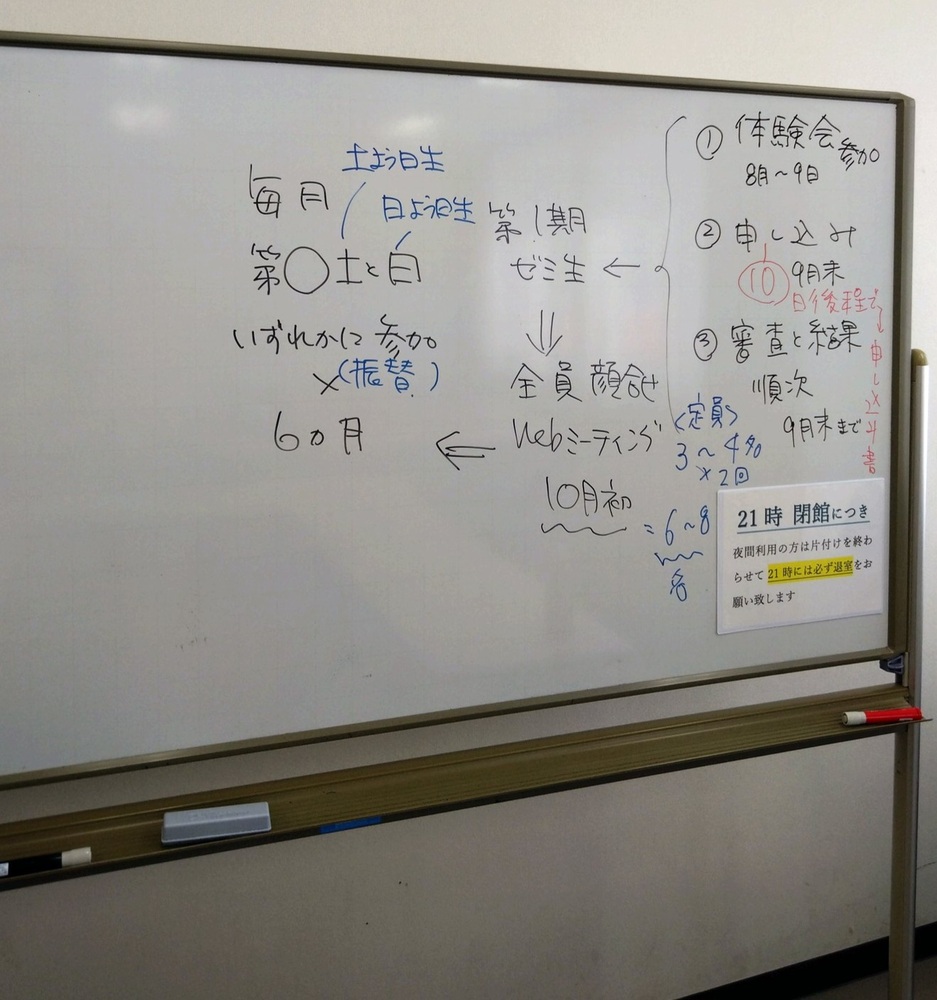 ① 体験会参加
8月～9日
② 申し込み
⑩ 9月末
日後程で→申し込み書
③ 審査と結果
順次
9月末まで
第1期
ゼミ生 ←
⇓
全員 顔合せ
Webミーティング
10月初
<定員>
3～4名
×2回
=6～8
名
⇐
土よう日生
日よう日生
毎月
第○土と日
いずれかに参加
×(振替)
6ヵ月
21時 閉館につき
夜間利用の方は片付けを終わ
らせて 21時には必ず退室をお
願い致します